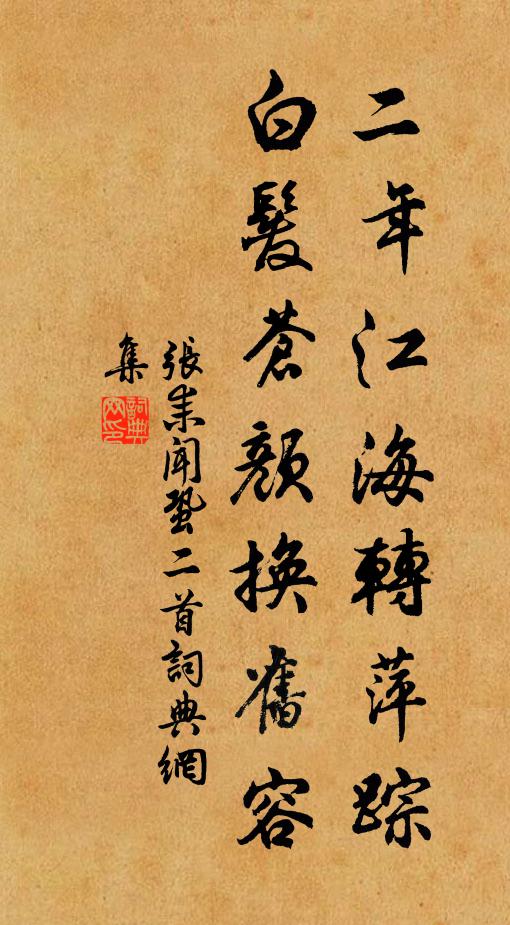 二年江海轉萍踪
白髮蒼顏換舊容
張耒聞蛩二首詞典網
集
詞典
网印